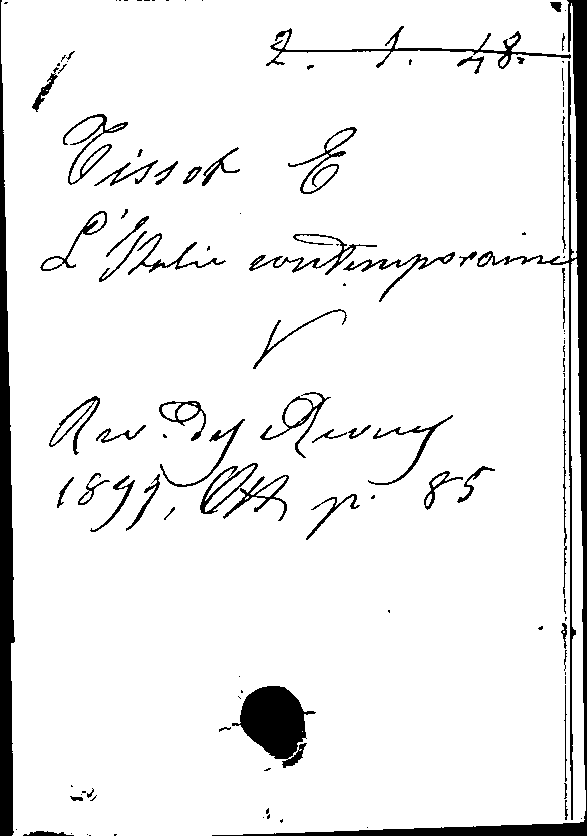 2. 1. 48.
Tissot E
L'Italie contemporaine
V
Rev. des Revues
1899, Oct p. 85